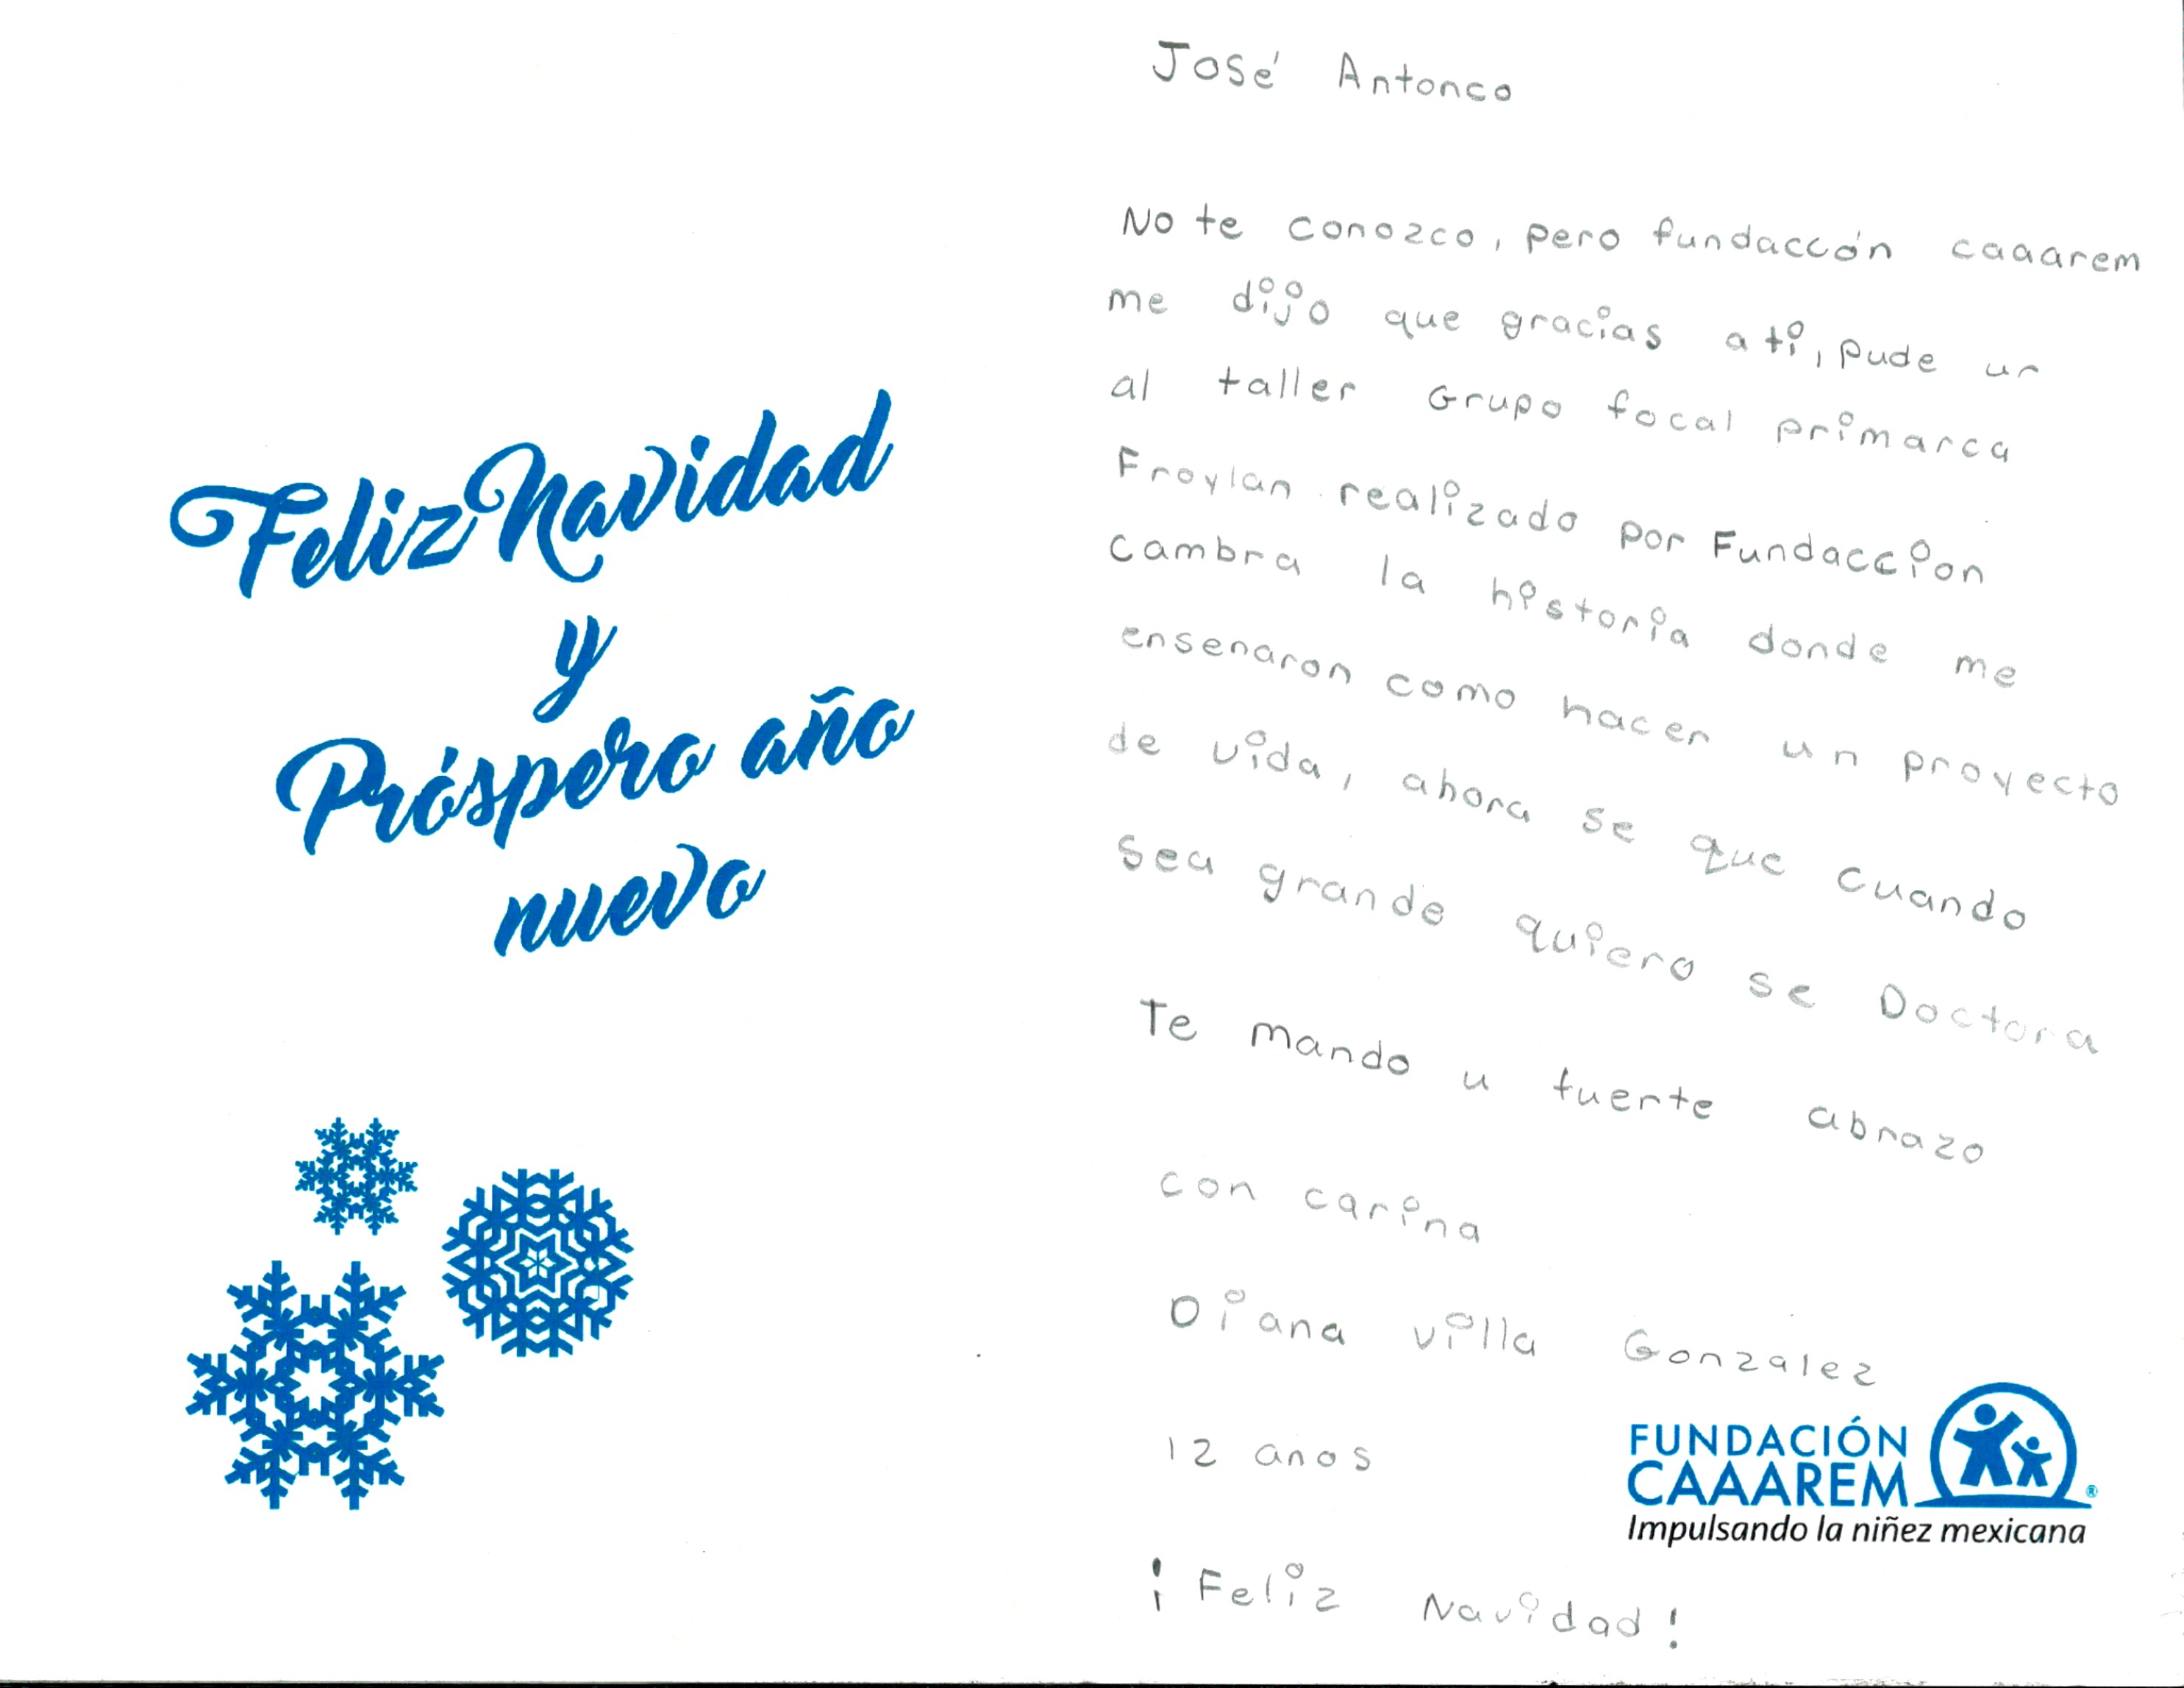 Feliz Navidad
y
Próspero año
nuevo
José Antonco
No te conozco, pero fundaccón caaarem
me dijo que gracias ati, pude ur
al taller Grupo focal primarca
Froylan realizado por Fundaccion
Cambra la historia donde me
ensenaron como hacer un proyecto
de vida, ahora se que cuando
sea grande quiero se Doctora
Te mando u fuerte abrazo
con carina
Diana villa Gonzalez
12 anos
¡Feliz Navidad!
FUNDACIÓN
CAAAREM®
Impulsando la niñez mexicana